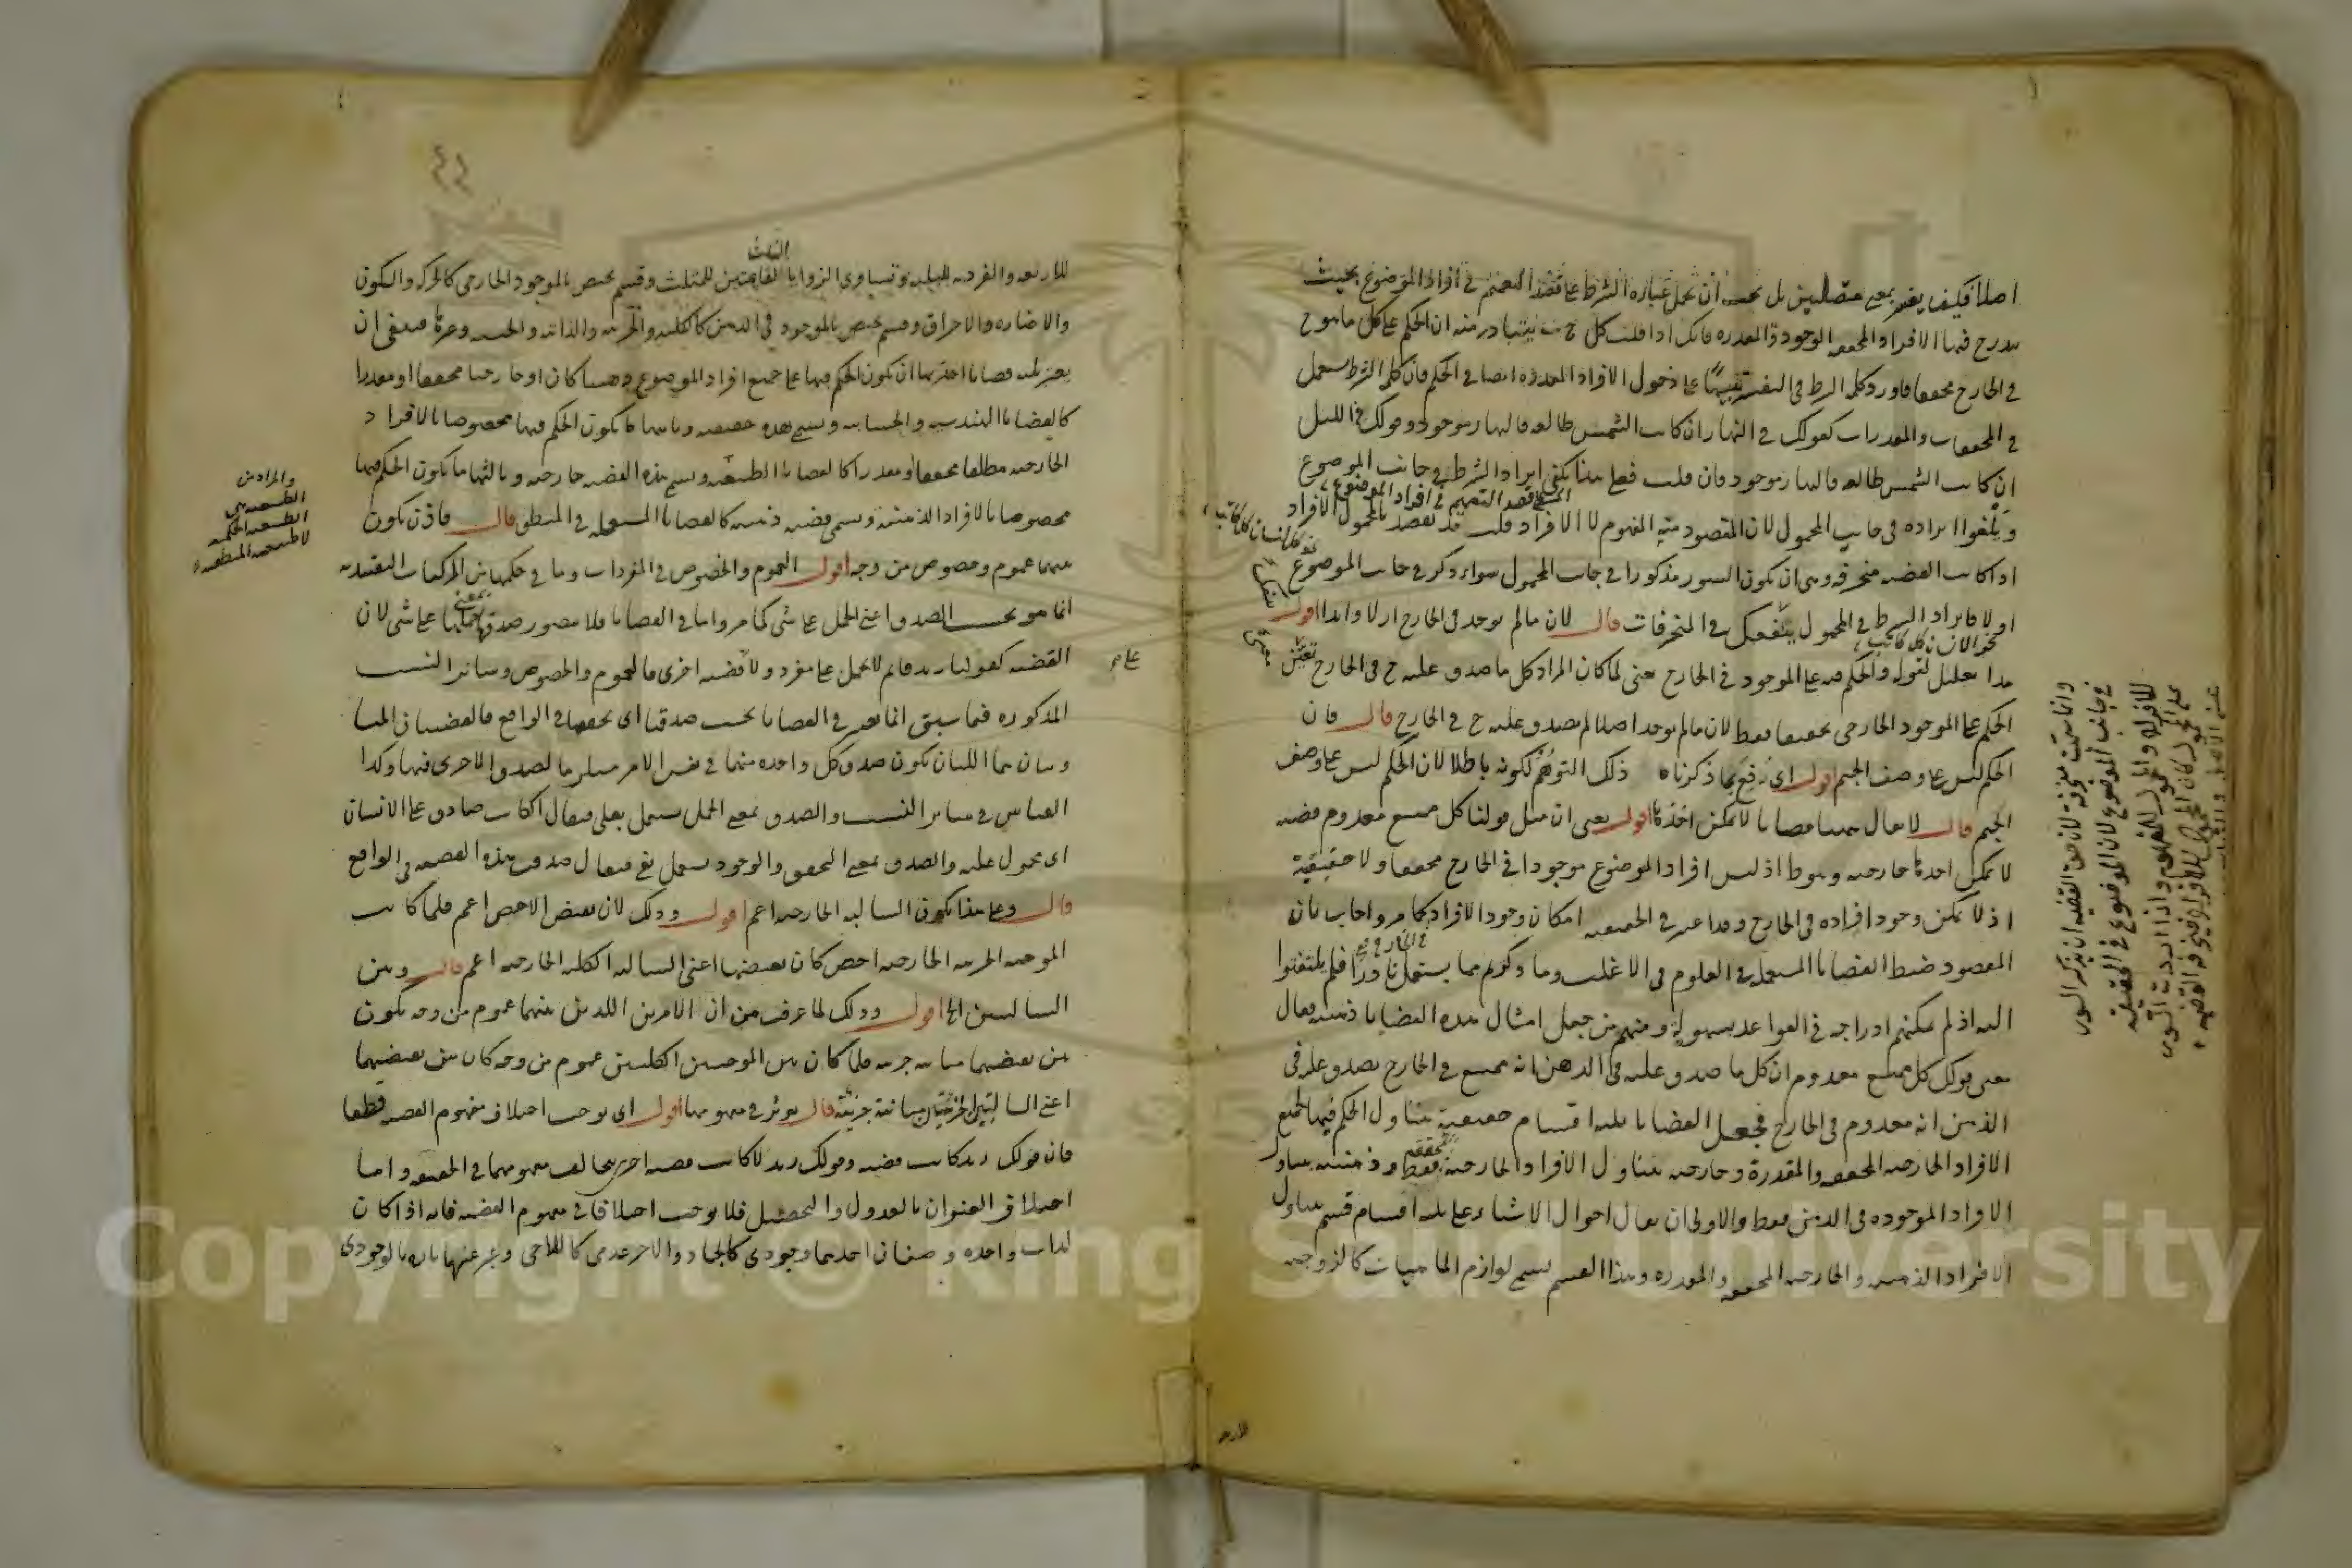 اصلا فكيف يفسر بمعنى متصلتين بل يجب ان تحمل عبارة الشرط على قصد التعميم في افراد الموضوع بحيث
يندرج فيها الافراد المحققة الوجود والمقدرة فانك اذا قلت كل ج ب يتبادر منه ان الحكم على كل ما هو ج
في الخارج محققا فاورد كلمة الشرط في التفسير تنبيها على دخول الافراد المقدرة ايضا في الحكم فان كلمة الشرط تستعمل
في المحققات والمقدرات كقولك في النهار ان كانت الشمس طالعة فالنهار موجود وقولك في الليل
ان كانت الشمس طالعة فالنهار موجود فان قلت فعلى هذا يكفي ايراد الشرط في جانب الموضوع
ويلغوا ايراده في جانب المحمول لان المقصود منه المفهوم لا الافراد قلت قد يقصد بالمحمول الافراد
اذا كانت القضية منحرفة وهي ان يكون السور مذكورا في جانب المحمول سواء ذكر في جانب الموضوع
او لا فايراد الشرط في المحمول ينفعك في المنحرفات قال لان ما لم يوجد في الخارج ازلا وابدا اقول
نحو الانسان كل كاتب
هذا تعليل لقوله والحكم فيه على الموجود في الخارج يعني لما كان المراد كل ما صدق عليه ج في الخارج تعين
الحكم على الموجود الخارجي محققا فقط لان ما لم يوجد اصلا لم يصدق عليه ج في الخارج قال فان
الحكم ليس على وصف الجيم اقول اي رفع بما ذكرناه ذلك التوهم لكونه باطلا لان الحكم ليس على وصف
الجيم قال لا يقال ههنا قضايا لا يمكن اخذها اقول يعني ان مثل قولنا كل ممتنع معدوم قضية
لا يمكن اخذها خارجية وهو ظ اذ ليس افراد الموضوع موجودا في الخارج محققا ولا حقيقية
اذ لا يمكن وجود افراده في الخارج وقد اعتبر في الحقيقية امكان وجود الافراد كما مر واجاب بان
المقصود ضبط القضايا المستعملة في العلوم في الاغلب وما ذكرتم مما يستعمل نادرا فلم يلتفتوا
اليه اذ لم يمكنهم ادراجه في القواعد بسهولة ومنهم من جعل امثال هذه القضايا ذهنية فقال
معنى قولك كل ممتنع معدوم ان كل ما صدق عليه في الذهن انه ممتنع في الخارج يصدق عليه في
الذهن انه معدوم في الخارج فجعل القضايا ثلثة اقسام حقيقية يتناول الحكم فيها لجميع
الافراد الخارجية المحققة والمقدرة وخارجية يتناول الافراد الخارجية المحققة فقط وذهنية يتناول
الافراد الموجودة في الذهن فقط والاولى ان يقال احوال الاشياء على ثلثة اقسام قسم يتناول
الافراد الذهنية والخارجية المحققة والمقدرة وهذا القسم يسمى لوازم الماهيات كالزوجية
للاربعة والفردية للثلثة وتساوي الزوايا الثلث لقائمتين للمثلث وقسم يختص بالموجود الخارجي كالحركة والسكون
والاضاءة والاحراق وقسم يختص بالموجود في الذهن كالكلية والجزئية والذاتية والجنسية وغيرها فينبغي ان
يعتبر ثلث قضايا احديها ان يكون الحكم فيها على جميع افراد الموضوع ذهنيا كان او خارجيا محققا او مقدرا
كالقضايا الهندسية والحسابية ويسمى هذه حقيقية وثانيها ما يكون الحكم فيها مخصوصا بالافراد
الخارجية مطلقا محققا او مقدرا كالقضايا الطبيعية ويسمى هذه القضية خارجية وثالثها ما يكون الحكم فيها
مخصوصا بالافراد الذهنية ويسمى قضية ذهنية كالقضايا المستعملة في المنطق قال فاذن يكون
بينهما عموم وخصوص من وجه اقول العموم والخصوص في المفردات وما في حكمها من المركبات التقييدية
انما هو بحسب الصدق اعني الحمل على شيء كما مر واما في القضايا فلا يتصور صدقها بمعنى حملها على شيء لان
القضية كقولنا زيد قائم لا تحمل على مفرد ولا قضية اخرى فالعموم والخصوص وسائر النسب
المذكورة فيما سبق انما يعتبر في القضايا بحسب صدقها اي تحققها في الواقع فالقضيتان المتسا
ويتان هما اللتان يكون صدق كل واحدة منهما في نفس الامر مستلزما لصدق الاخرى فيها وكذا
القياس في سائر النسب والصدق بمعنى الحمل يستعمل بعلى فيقال الكاتب صادق على الانسان
اي محمول عليه والصدق بمعنى التحقق والوجود يستعمل بفي فيقال صدقت هذه القضية في الواقع
قال وعلى هذا يكون السالبة الخارجية اعم اقول وذلك لان نقيض الاخص اعم فلما كانت
الموجبة الجزئية الخارجية اخص كان نقيضها اعني السالبة الكلية الخارجية اعم قال وبين
السالبتين الخ اقول وذلك لما عرفت من ان الامرين اللذين بينهما عموم من وجه يكون
بين نقيضيهما مباينة جزئية فلما كان بين الموجبتين الكليتين عموم من وجه كان بين نقيضيهما
اعني السالبتين الجزئيتين مباينة جزئية قال يؤثر في مفهومها اقول اي يوجب اختلاف مفهوم القضية قطعا
فان قولك زيد كاتب قضية وقولك زيد لا كاتب قضية اخرى يخالف مفهومهما في الحقيقة واما
اختلاف العنوان بالعدول والتحصيل فلا يوجب اختلافا في مفهوم القضية فانه اذا كان
لذات واحدة وصفان احدهما وجودي كالجماد والاخر عدمي كاللاحي وعبر عنها تارة بالوجودي
والمراد من
الطبيعيات
الطبيعية الحكمية
لا طبيعية المنطقية